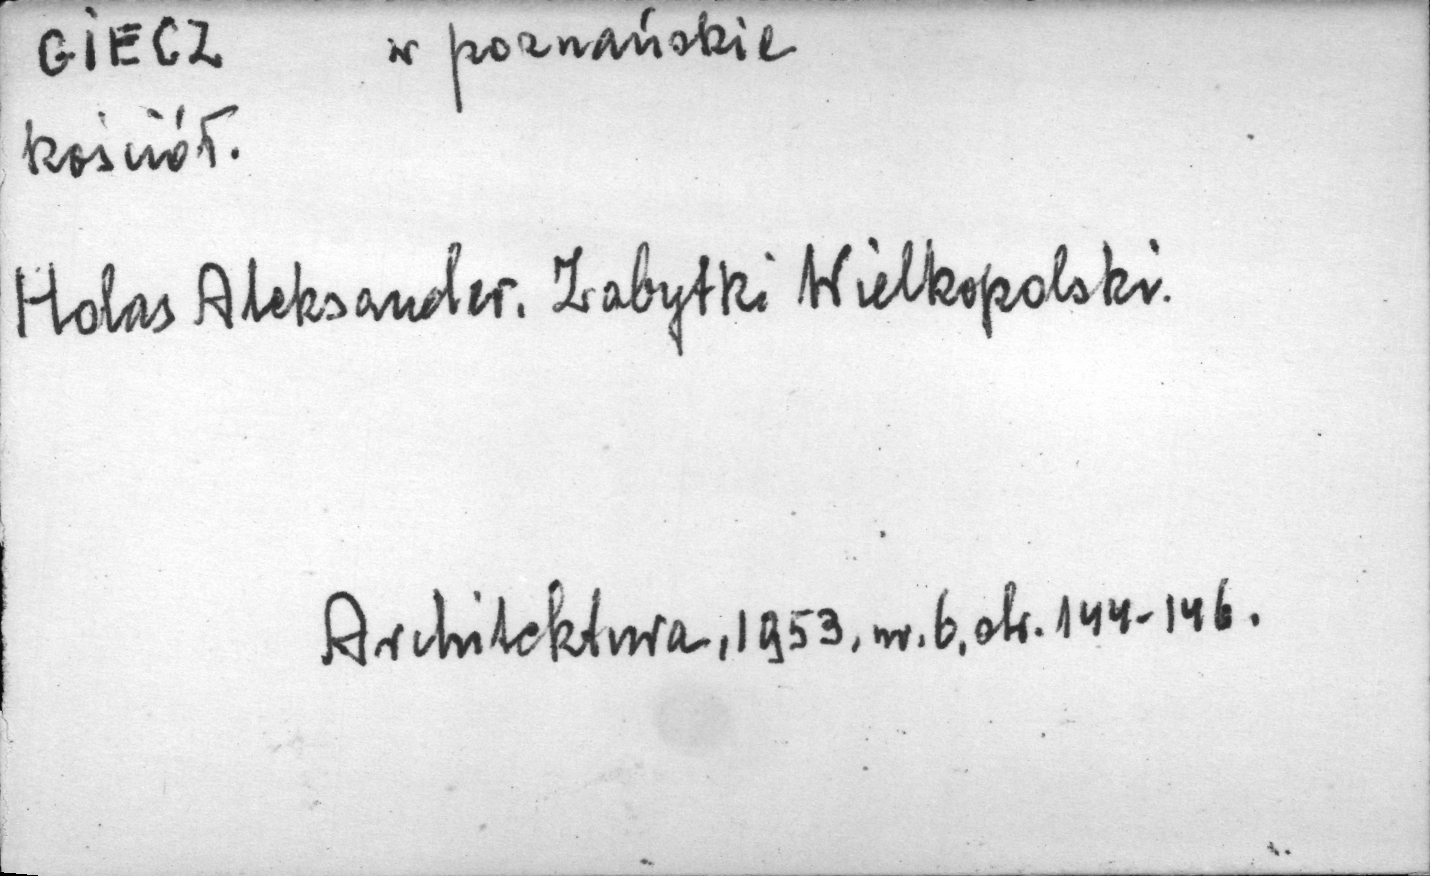 GIECZ w poznańskie
kościół.
Holas Aleksander. Zabytki Wielkopolski.
Architektura, 1953, nr. 6, str. 144-146.